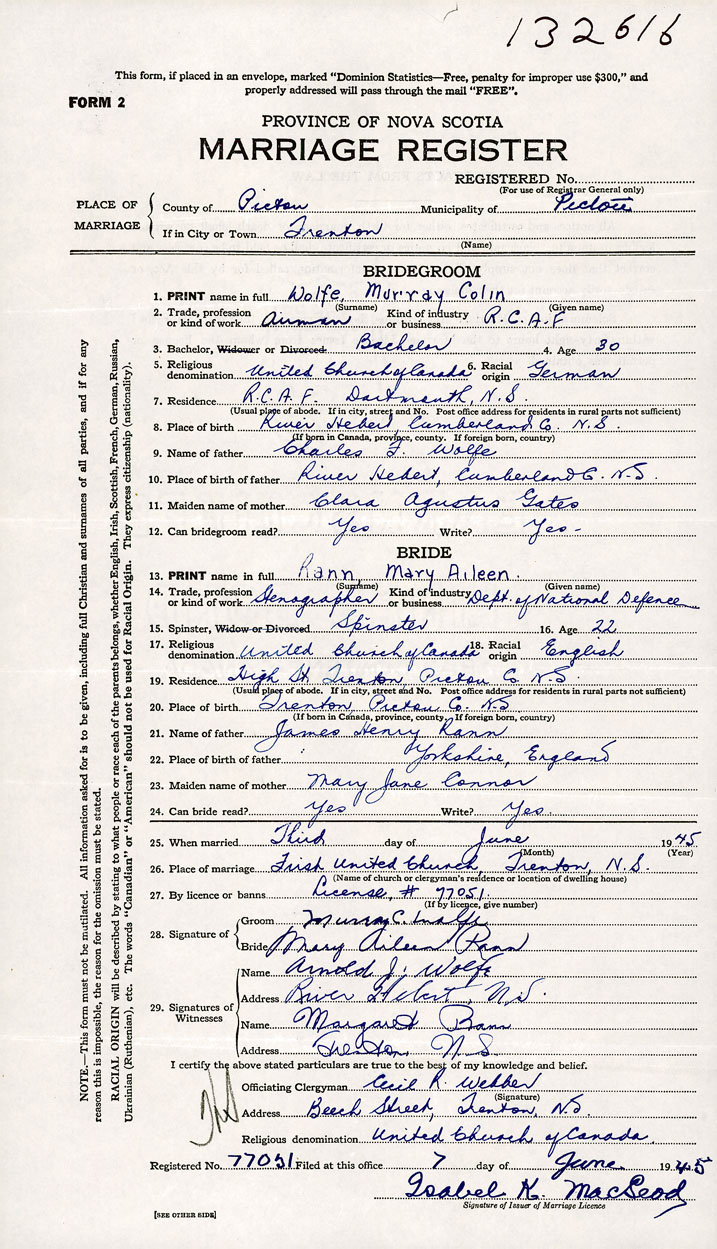 132616
This form, if placed in an envelope, marked "Dominion Statistics—Free, penalty for improper use $300," and
properly addressed will pass through the mail "FREE".
FORM 2
PROVINCE OF NOVA SCOTIA
MARRIAGE REGISTER
REGISTERED No.
(For use of Registrar General only)
PLACE OF MARRIAGE
County of Pictou Municipality of Pictou
If in City or Town Trenton
(Name)
BRIDEGROOM
1. PRINT name in full Wolfe, Murray Colin
(Surname) (Given name)
2. Trade, profession or kind of work Airman Kind of industry or business R.C.A.F
3. Bachelor, Widower or Divorced Bachelor 4. Age 30
5. Religious denomination United Church of Canada 6. Racial origin German
7. Residence R.C.A.F. Dartmouth, N.S.
(Usual place of abode. If in city, street and No. Post office address for residents in rural parts not sufficient)
8. Place of birth River Hebert Cumberland Co. N.S.
(If born in Canada, province, county. If foreign born, country)
9. Name of father Charles F. Wolfe
10. Place of birth of father River Hebert, Cumberland Co. N.S.
11. Maiden name of mother Clara Agustus Gates
12. Can bridegroom read? Yes Write? Yes -
BRIDE
13. PRINT name in full Rann, Mary Aileen.
(Surname) (Given name)
14. Trade, profession or kind of work Stenographer Kind of industry or business Dept. of National Defence
15. Spinster, Widow or Divorced Spinster 16. Age 22
17. Religious denomination United Church of Canada 18. Racial origin English
19. Residence High St. Trenton, Pictou Co. N.S.
(Usual place of abode. If in city, street and No. Post office address for residents in rural parts not sufficient)
20. Place of birth Trenton, Pictou Co. N.S
(If born in Canada, province, county. If foreign born, country)
21. Name of father James Henry Rann
22. Place of birth of father Yorkshire, England
23. Maiden name of mother Mary Jane Connor
24. Can bride read? Yes Write? Yes.
25. When married Third day of June 1945
(Month) (Year)
26. Place of marriage First United Church, Trenton, N.S.
(Name of church or clergyman's residence or location of dwelling house)
27. By licence or banns License, # 77051
(If by licence, give number)
28. Signature of
Groom Murray C. Wolfe
Bride Mary Aileen Rann
29. Signatures of Witnesses
Name Arnold J. Wolfe
Address River Hebert, N.S.
Name Margaret Rann
Address Trenton N.S.
I certify the above stated particulars are true to the best of my knowledge and belief.
Officiating Clergyman Cecil R. Webber
(Signature)
Address Beech Street, Trenton, N.S
Religious denomination United Church of Canada.
Registered No. 77051 Filed at this office 7 day of June 1945
Isabel K MacLeod
Signature of Issuer of Marriage Licence
[SEE OTHER SIDE]
NOTE.—This form must not be mutilated. All information asked for is to be given, including full Christian and surnames of all parties, and if for any
reason this is impossible, the reason for the omission must be stated.
RACIAL ORIGIN will be described by stating to what people or race each of the parents belongs, whether English, Irish, Scottish, French, German, Russian,
Ukrainian (Ruthenian), etc. The words "Canadian" or "American" should not be used for Racial Origin. They express citizenship (nationality).